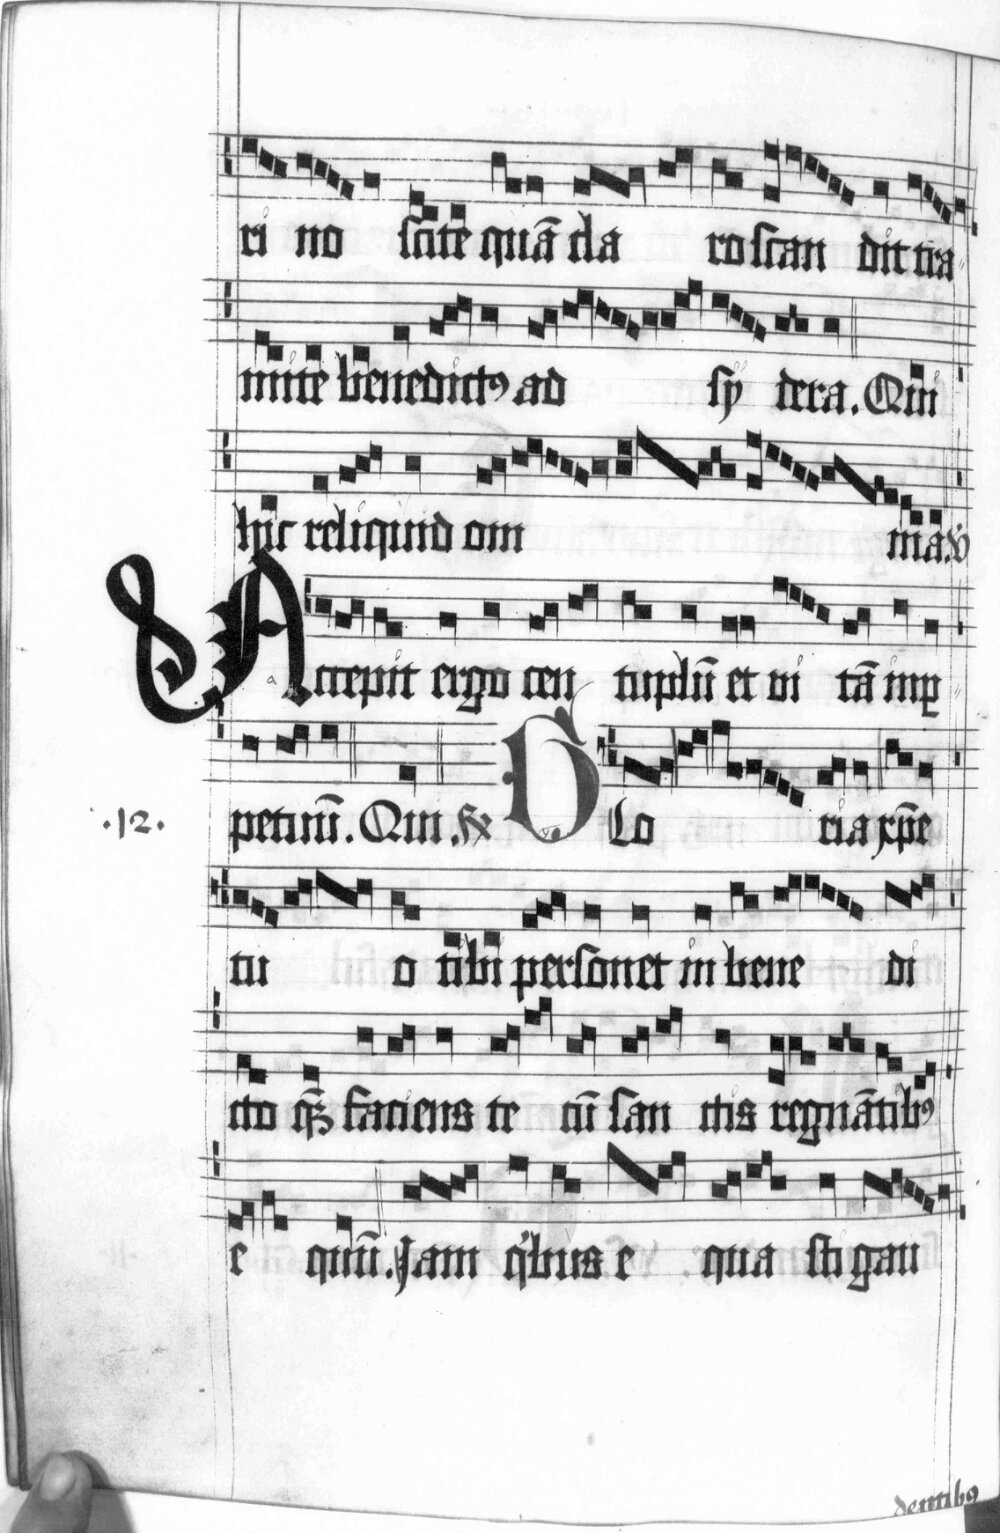 ri no scitẽ quã cla ro scan dit tra〃
mite benedictꝰ ad sÿ dera. Qui
hic reliquid om nia. v̇
Accepit ergo cen tuplũ et vi tã im ꝑ〃
petuũ. Qui. R̸
.12. Glo ria xp̃e
tu o tibi personet in bene di
cto qꝫ faciens te cũ san ctis regnãtibꝰ
e quũ. Jam qͥbus e qua sti gau
dentibꝰ